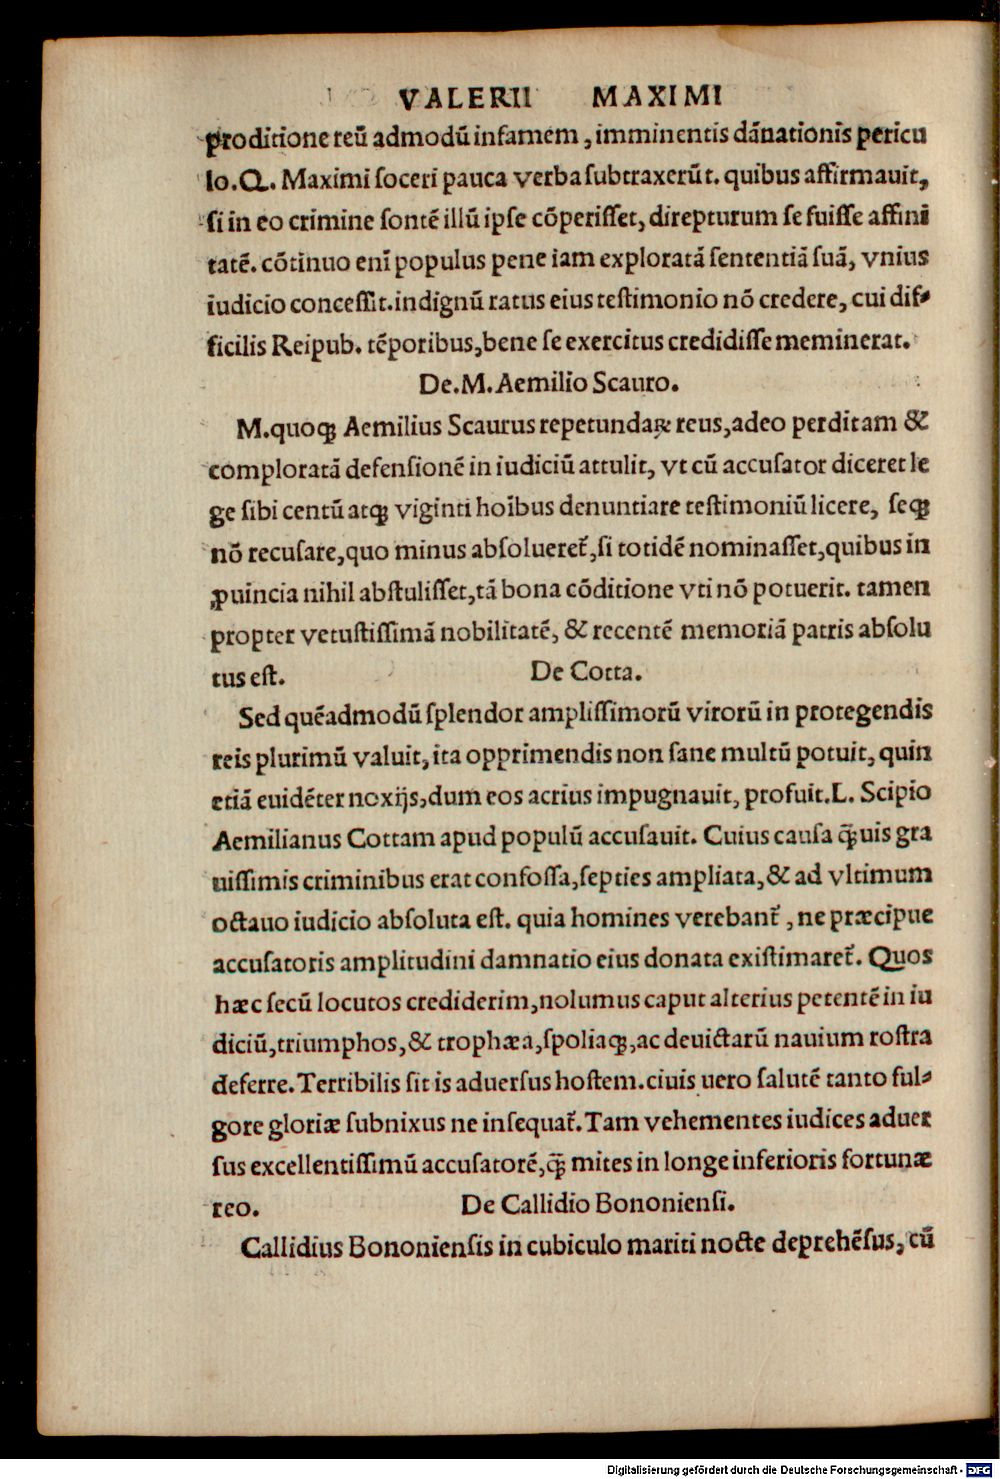 VALERII MAXIMI
proditione reū admodū infamem, imminentis dānationis pericu
lo. Q. Maximi soceri pauca verba subtraxerūt. quibus affirmauit,
si in eo crimine sontē illū ipse cōperisset, direpturum se fuisse affini
tatē. cōtinuo enī populus pene iam exploratā sententiā suā, vnius
iudicio concessit. indignū ratus eius testimonio nō credere, cui dif-
ficilis Reipub. tēporibus, bene se exercitus credidisse meminerat.
De. M. Aemilio Scauro.
M. quoqꝫ Aemilius Scaurus repetundaꝝ reus, adeo perditam &
comploratā defensionē in iudiciū attulit, vt cū accusator diceret le
ge sibi centū atqꝫ viginti hoībus denuntiare testimoniū licere, seqꝫ
nō recusare, quo minus absolueret᷑, si totidē nominasset, quibus in
ꝓuincia nihil abstulisset, tā bona cōditione vti nō potuerit. tamen
propter vetustissimā nobilitatē, & recentē memoriā patris absolu
tus est. De Cotta.
Sed quēadmodū splendor amplissimorū virorū in protegendis
reis plurimū valuit, ita opprimendis non sane multū potuit, quin
etiā euidēter noxijs, dum eos acrius impugnauit, profuit. L. Scipio
Aemilianus Cottam apud populū accusauit. Cuius causa qꝫ̄uis gra
uissimis criminibus erat confossa, septies ampliata, & ad vltimum
octauo iudicio absoluta est. quia homines verebant᷑, ne præcipue
accusatoris amplitudini damnatio eius donata existimaret᷑. Quos
hæc secū locutos crediderim, nolumus caput alterius petentē in iu
diciū, triumphos, & trophæa, spoliaqꝫ, ac deuictarū nauium rostra
deferre. Terribilis sit is aduersus hostem. ciuis uero salutē tanto ful-
gore gloriæ subnixus ne insequat᷑. Tam vehementes iudices aduer
sus excellentissimū accusatorē, qꝫ̄ mites in longe inferioris fortunæ
reo. De Callidio Bononiensi.
Callidius Bononiensis in cubiculo mariti nocte deprehēsus, cū
Digitalisierung gefördert durch die Deutsche Forschungsgemeinschaft - DFG